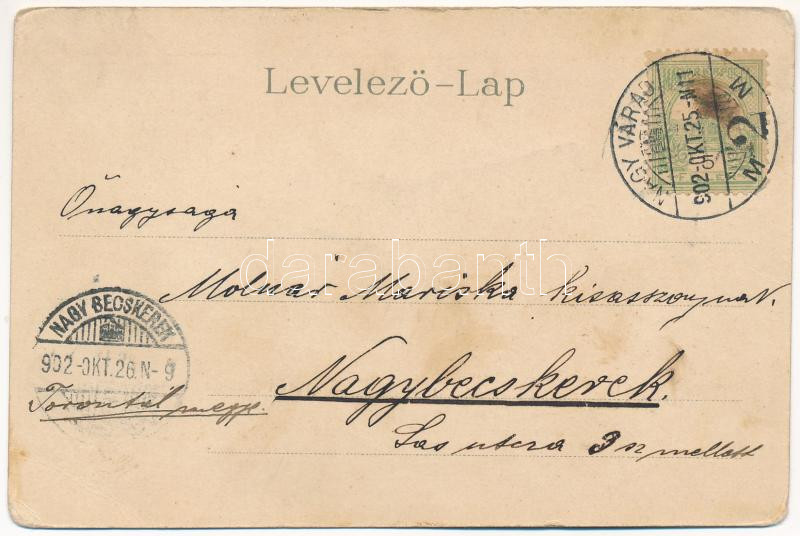 Levelező-Lap
NAGY VÁRAD
902-OKT.25-N11
M 2 M
Őnagysága
Molnár Mariska kisasszonynak.
NAGY BECSKEREK
902-OKT.26.N-9
Nagybecskerek.
Torontál megye.
Sas utcza 3 sz mellett
darabanth